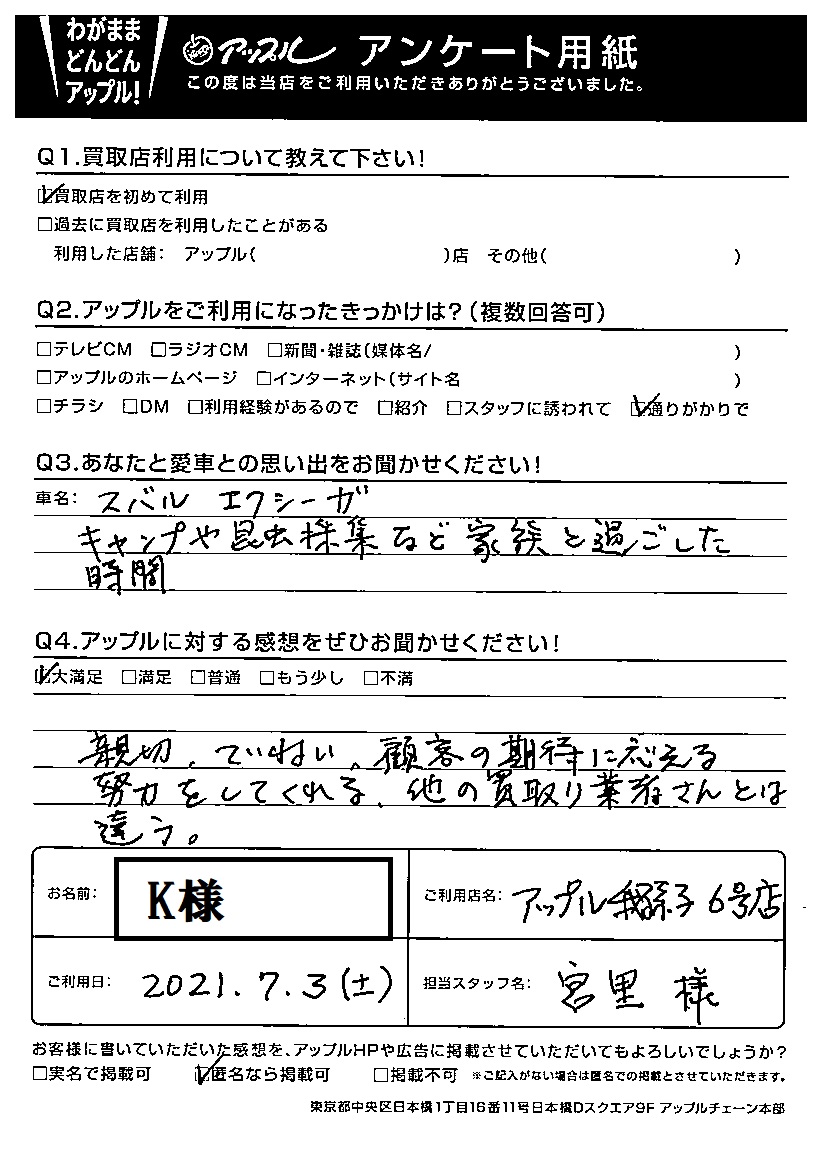 わがまま
どんどん
アップル!
アップル アンケート用紙
この度は当店をご利用いただきありがとうございました。
Q1.買取店利用について教えて下さい!
☑買取店を初めて利用
□過去に買取店を利用したことがある
利用した店舗: アップル( )店 その他( )
Q2.アップルをご利用になったきっかけは?(複数回答可)
□テレビCM □ラジオCM □新聞・雑誌(媒体名/ )
□アップルのホームページ □インターネット(サイト名 )
□チラシ □DM □利用経験があるので □紹介 □スタッフに誘われて ☑通りがかりで
Q3.あなたと愛車との思い出をお聞かせください!
車名: スバル エクシーガ
キャンプや昆虫採集など家族と過ごした
時間
Q4.アップルに対する感想をぜひお聞かせください!
☑大満足 □満足 □普通 □もう少し □不満
親切、ていねい。顧客の期待に応える
努力をしてくれる、他の買取り業者さんとは
違う。
お名前: K様
ご利用店名: アップル我孫子6号店
ご利用日: 2021.7.3(土)
担当スタッフ名: 宮里 様
お客様に書いていただいた感想を、アップルHPや広告に掲載させていただいてもよろしいでしょうか?
□実名で掲載可 ☑匿名なら掲載可 □掲載不可 ※ご記入がない場合は匿名での掲載とさせていただきます。
東京都中央区日本橋1丁目16番11号日本橋Dスクエア9F アップルチェーン本部